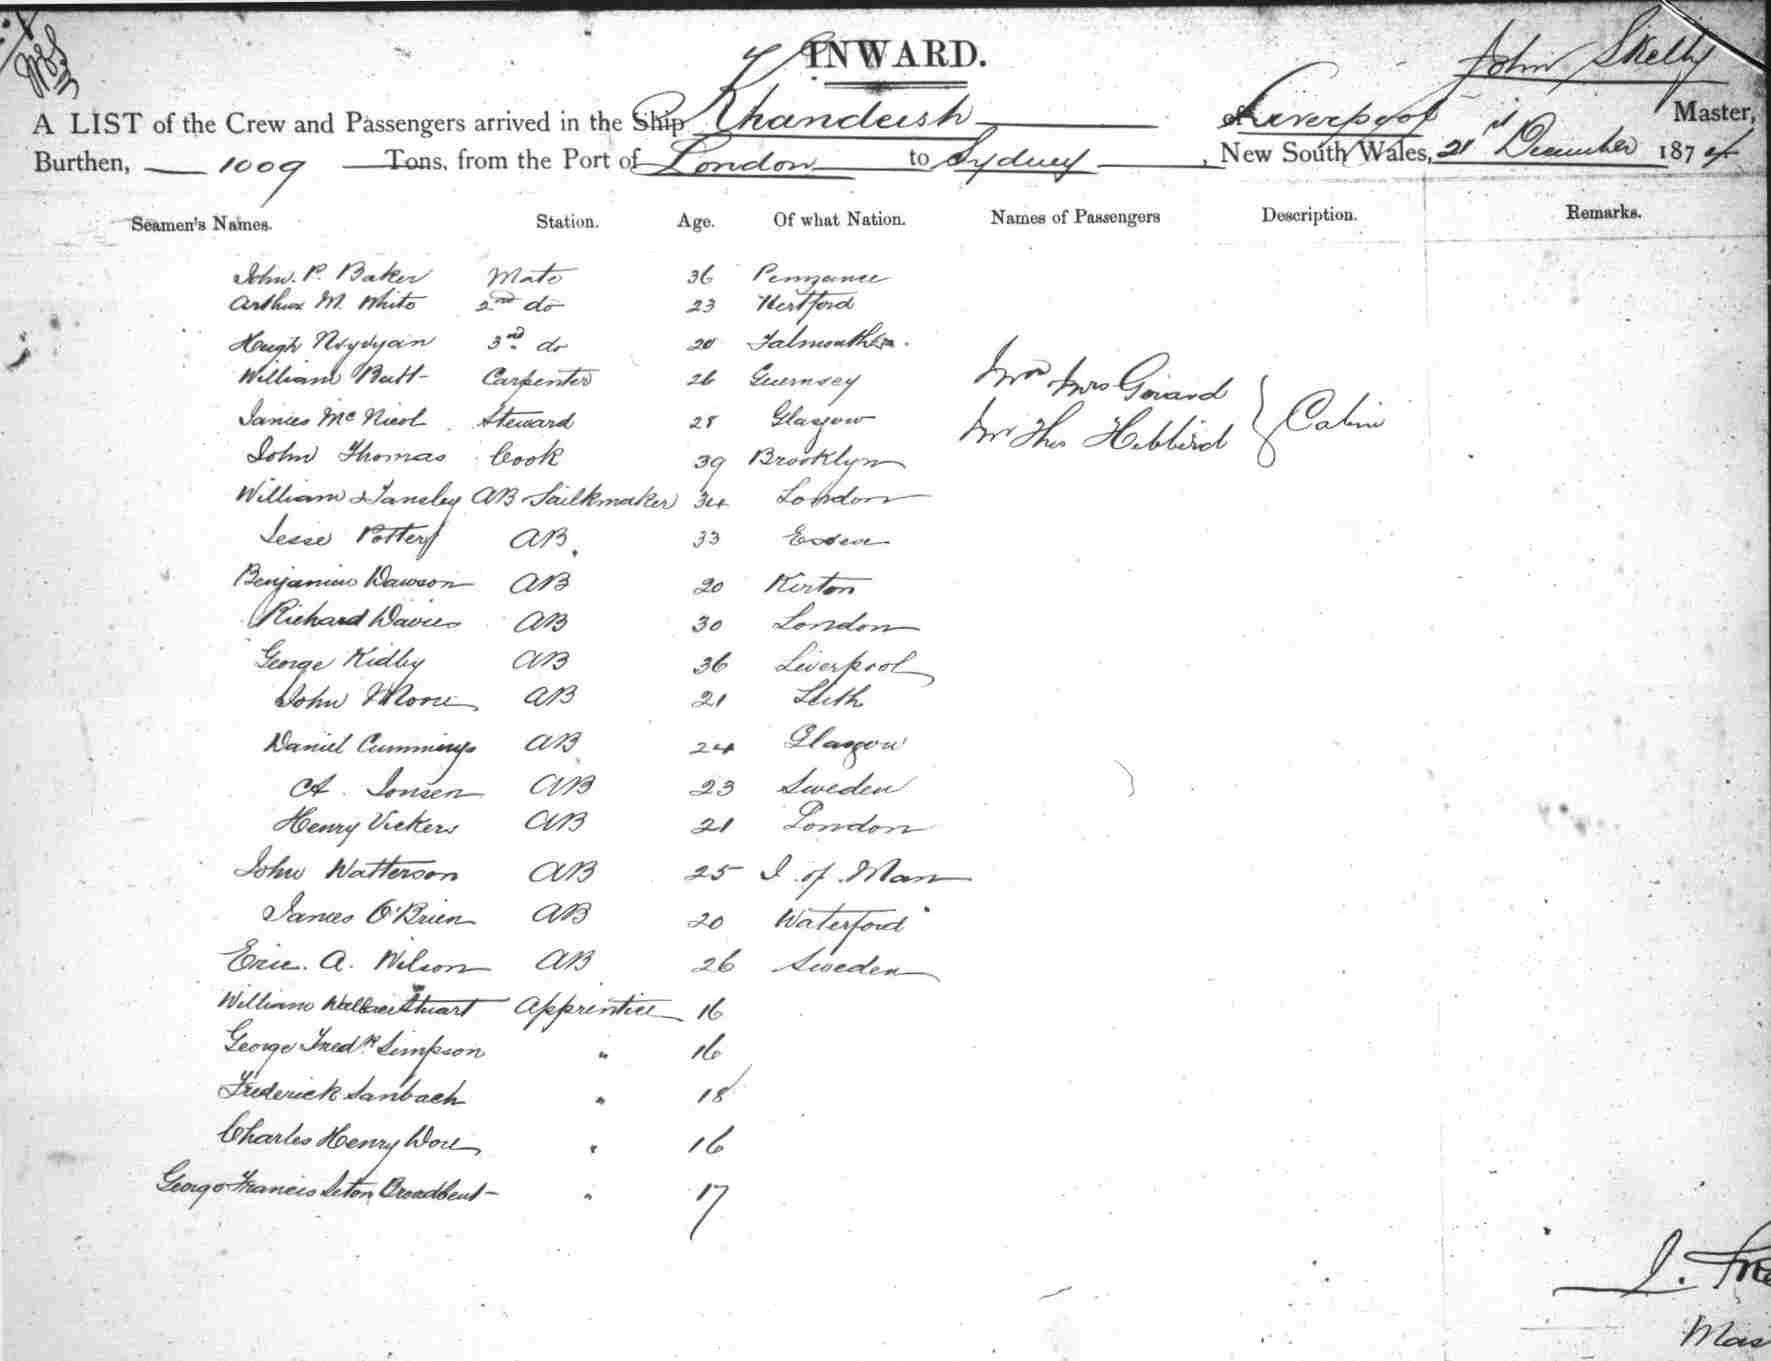 INWARD.
John Skelly
A LIST of the Crew and Passengers arrived in the Ship Khandeish of Liverpool Master,
Burthen, 1009 Tons, from the Port of London to Sydney, New South Wales, 21st December 1874
Seamen's Names. Station. Age. Of what Nation. Names of Passengers Description. Remarks.
John. P. Baker Mate 36 Penzance
Arthur M. White 2nd do 23 Hertford
Hugh 3rd do 20 Falmouth
William Butt Carpenter 26 Guernsey
Mr Mrs Girard
James McNicol Steward 28 Glasgow
Mr Thos Hibbird } Cabin
John Thomas Cook 39 Brooklyn
William Tansley AB Sailkmaker 34 London
Jesse Pottery AB. 33 Essex
Benjamin Dawson AB 20 Kirton
Richard Davies AB 30 London
George Ridley AB 36 Liverpool
John Moore AB 21 Leith
Daniel Cummings AB 24 Glasgow
A. Jonsen AB 23 Sweden
Henry Vickers AB 21 London
John Watterson AB 25 I. of. Man
James O'Brien AB 20 Waterford
Eric. A. Wilson AB 26 Sweden
William Wallace Stuart Apprentice 16
George Fredk Simpson " 16
Frederick Sanbach " 18
Charles Henry " 16
George Francis Seton Broadbent " 17
J.
Mas